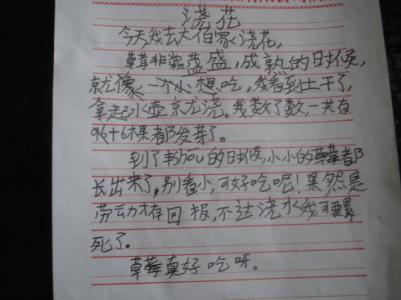 浇花
今天我去大伯家浇花,
草莓非常 成熟的时候,
就像一个小 想吃,我看到土干了,
拿起水壶就浇。我数了数,一共有
96+6棵都发芽了。
到了 的时候,小小的草莓都
长出来了,别看小,可好吃呢!果然是
劳动才有回报,不过浇水我可要累
死了。
草莓真好吃呀。